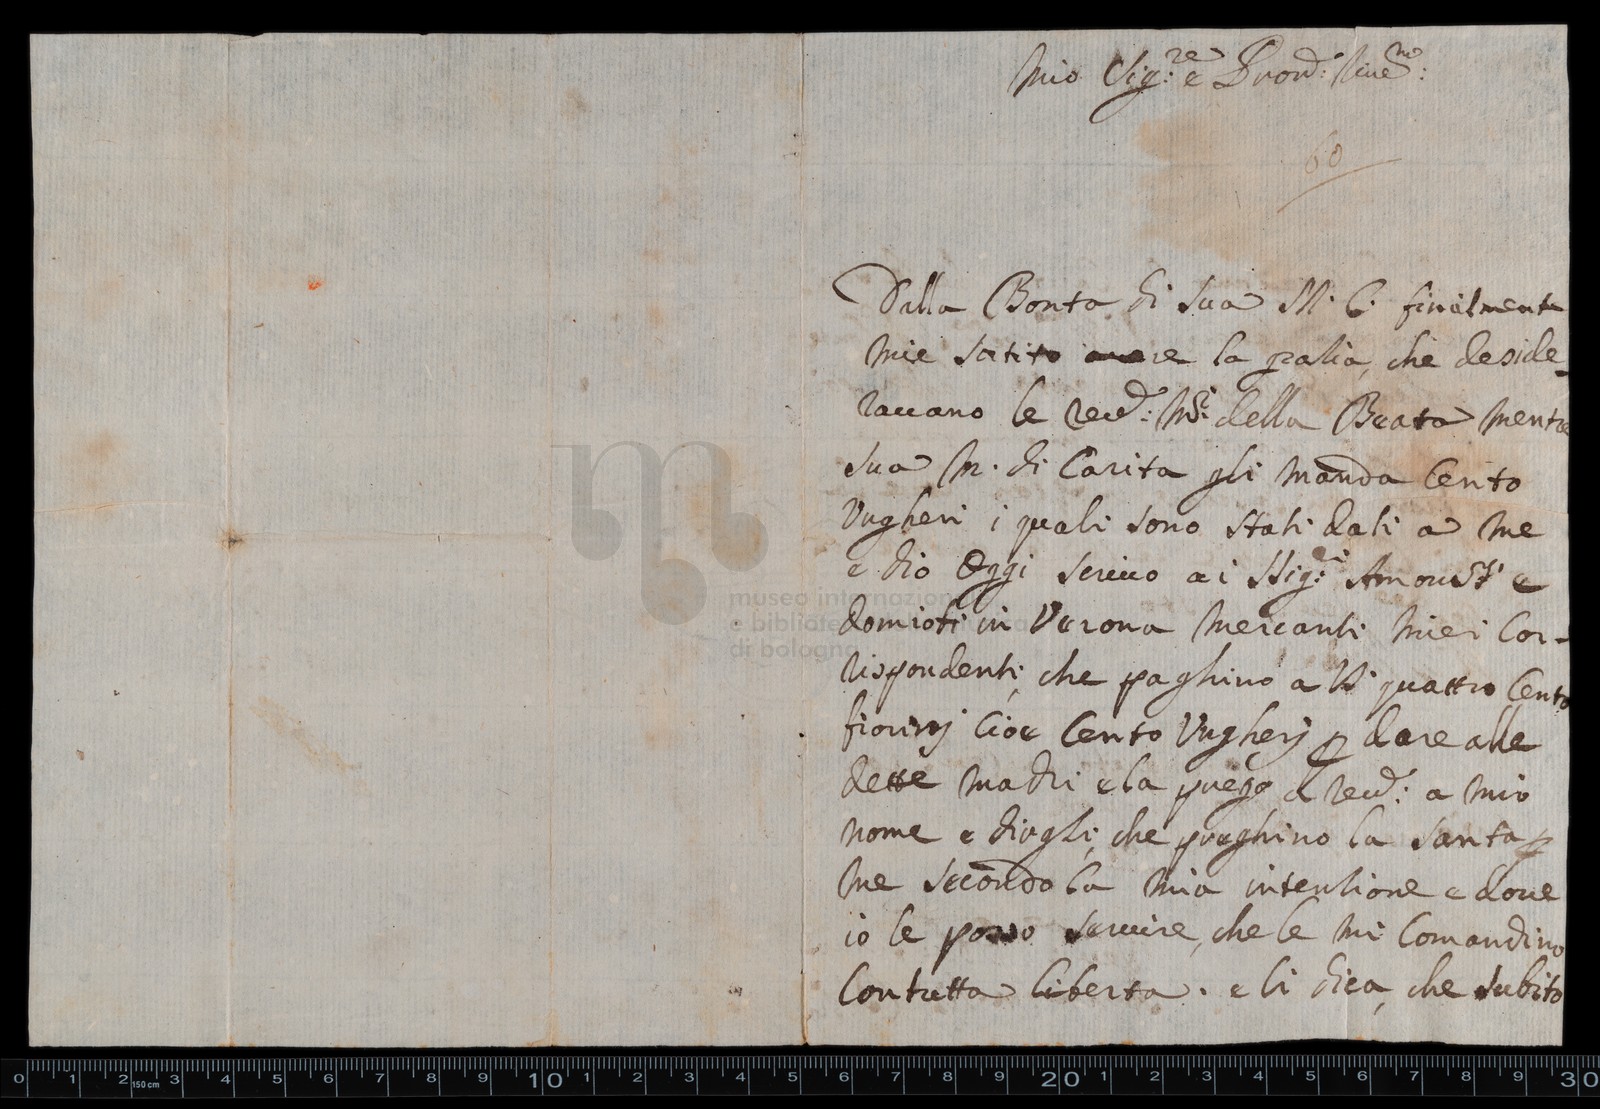 Mio Sig:re e Pron: Riue:mo:
60
Dalla Bonta di sua M. C. finalmente
mie sortito auere la gratia, che deside-
rauano le reud: M: della Beata mentre
sua M. di Carita gli manda Cento
Vngheri i quali sono stati dati a me
e dio Oggi scriuo ai SSig:ri e
domioti in Verona Mercanti Miei Cor-
rispondenti, che paghino a quattro Cento
fiorinj Cioe Cento Vngherj p dare alle
dette madri e la prego reud: a mio
nome e dirgli, che preghino la santa p
me secondo la mia intentione e doue
io le posso seruire, che le mi Comandino
Con tutta liberta. e li dica, che subito
museo internazionale
e biblioteca della musica
di bologna
0 1 2 150 cm 3 4 5 6 7 8 9 10 1 2 3 4 5 6 7 8 9 20 1 2 3 4 5 6 7 8 9 30